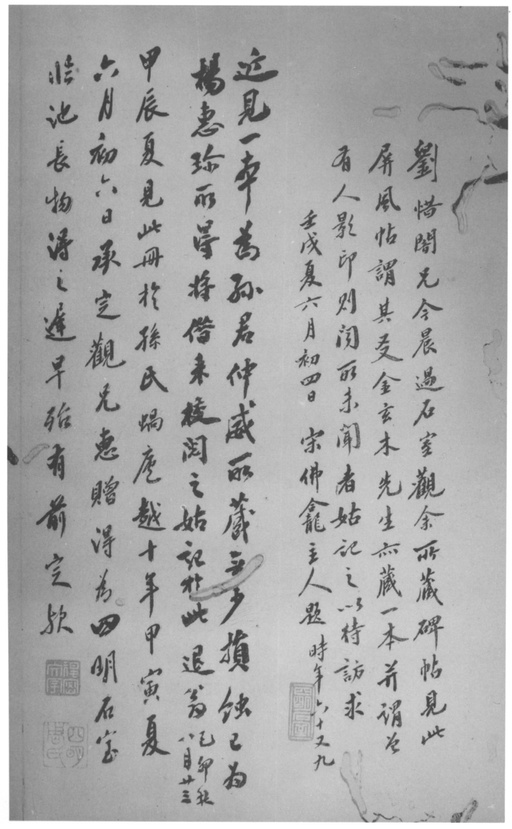 劉惜闇兄今晨過石室觀余所藏碑帖見此
屏風帖謂其友金玄木先生亦藏一本并謂曾
有人影印則聞所未聞者姑記之以待訪求
壬戌夏六月初四日 宋佛龕主人題 時年六十又九
近見一本為孫君仲威所藏少損蝕已為
楊惠珍所得將借來校閱之姑記於此 退翁 乙卯秋
八月廿三
甲辰夏見此冊於孫氏蝸廬越十年甲寅夏
六月初六日承定觀兄惠贈得為四明石室
臨池長物得之遲早殆有前定歟